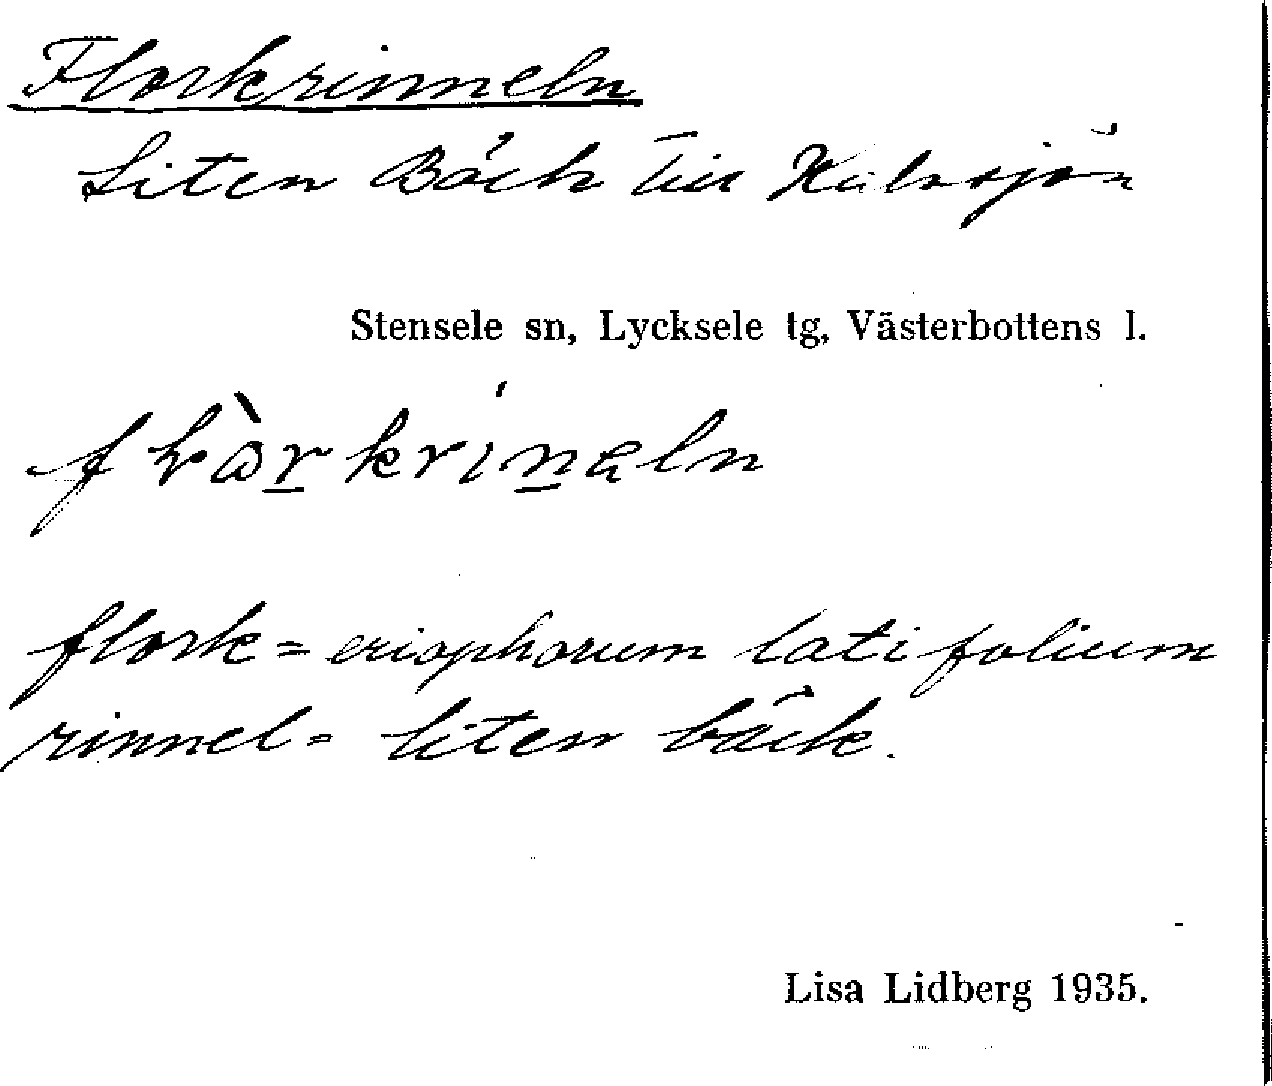 Florkrinneln
Liten Bäck till
Stensele sn, Lycksele tg, Västerbottens l.
flork = eriophorum latifolium
rinnel = liten bäck.
Lisa Lidberg 1935.